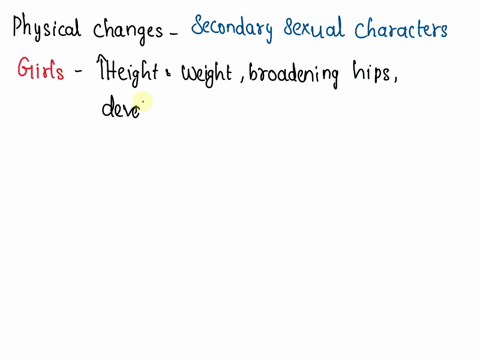 Physical changes - Secondary Sexual Characters
Girls - ↑Height & weight, broadening hips,
deve